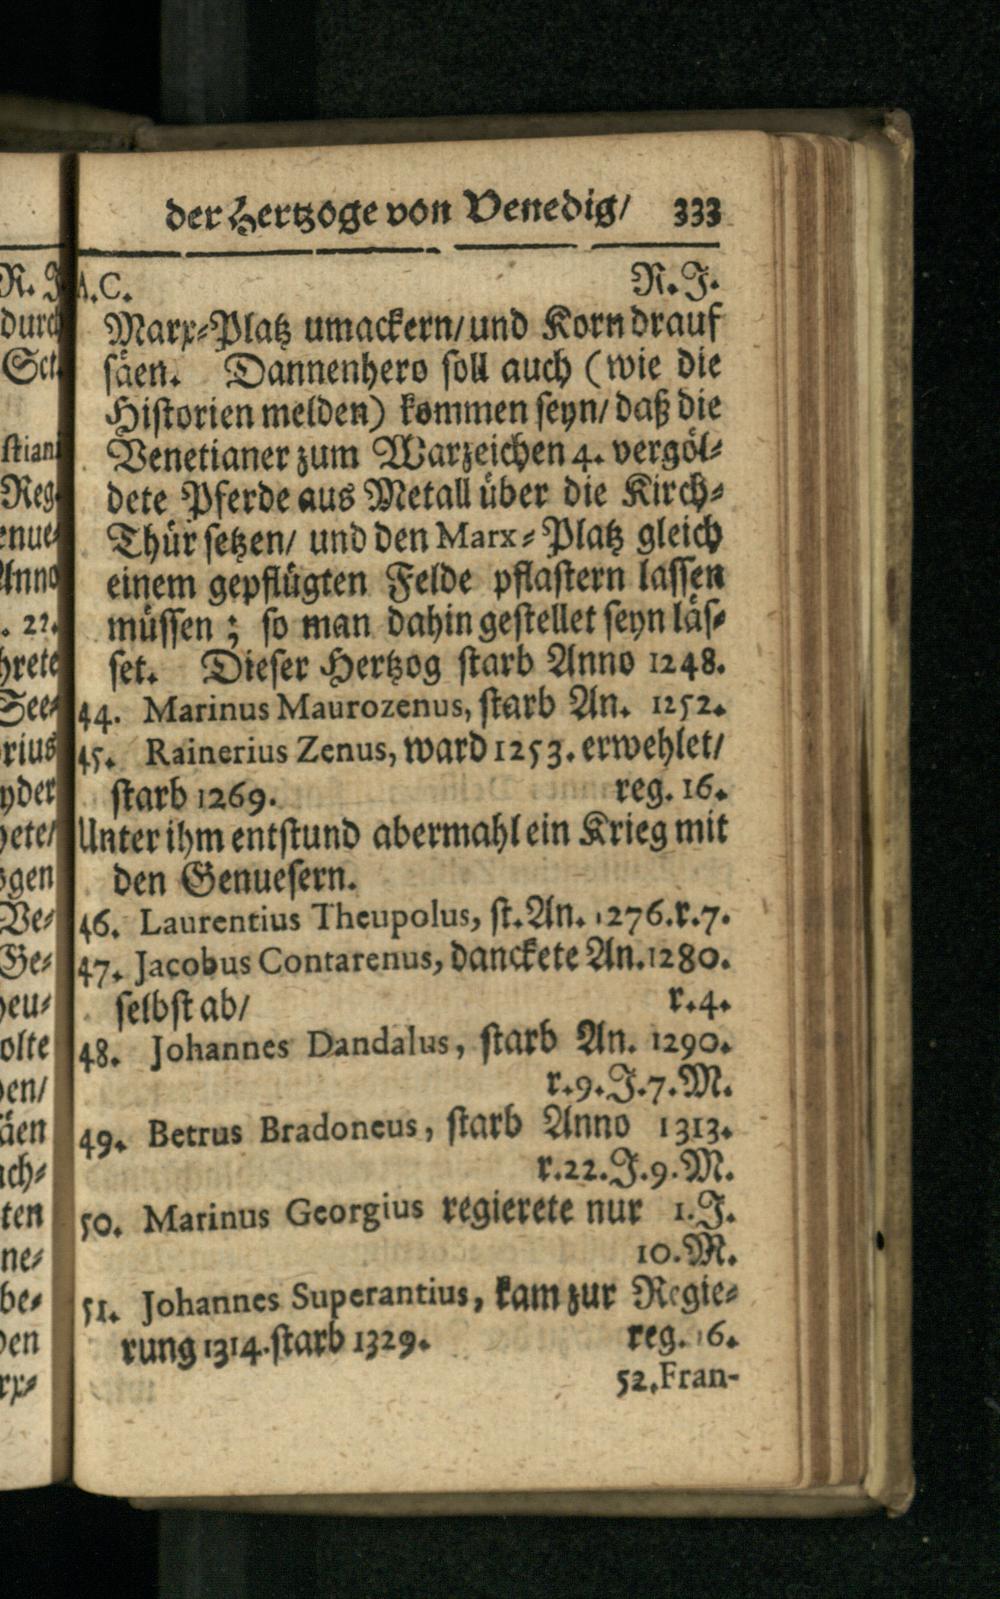 der Hertzoge von Venedig/ 333
A.C. R.J.
Marx-Platz umackern/ und Korn drauf
säen. Dannenhero soll auch (wie die
Historien melden) kommen seyn/ daß die
Venetianer zum Warzeichen 4. vergöl-
dete Pferde aus Metall über die Kirch-
Thür setzen/ und den Marx-Platz gleich
einem gepflügten Felde pflastern lassen
müssen; so man dahin gestellet seyn läs-
set. Dieser Hertzog starb Anno 1248.
44. Marinus Maurozenus, starb An. 1252.
45. Rainerius Zenus, ward 1253. erwehlet/
starb 1269. reg. 16.
Unter ihm entstund abermahl ein Krieg mit
den Genuesern.
46. Laurentius Theupolus, st. An. 1276. r. 7.
47. Jacobus Contarenus, danckete An. 1280.
selbst ab/ r. 4.
48. Johannes Dandalus, starb An. 1290.
r. 9. J. 7. M.
49. Betrus Bradoneus, starb Anno 1313.
r. 22. J. 9. M.
50. Marinus Georgius regierete nur 1. J.
10. M.
51. Johannes Superantius, kam zur Regie-
rung 1314. starb 1329. reg. 16.
52. Fran-